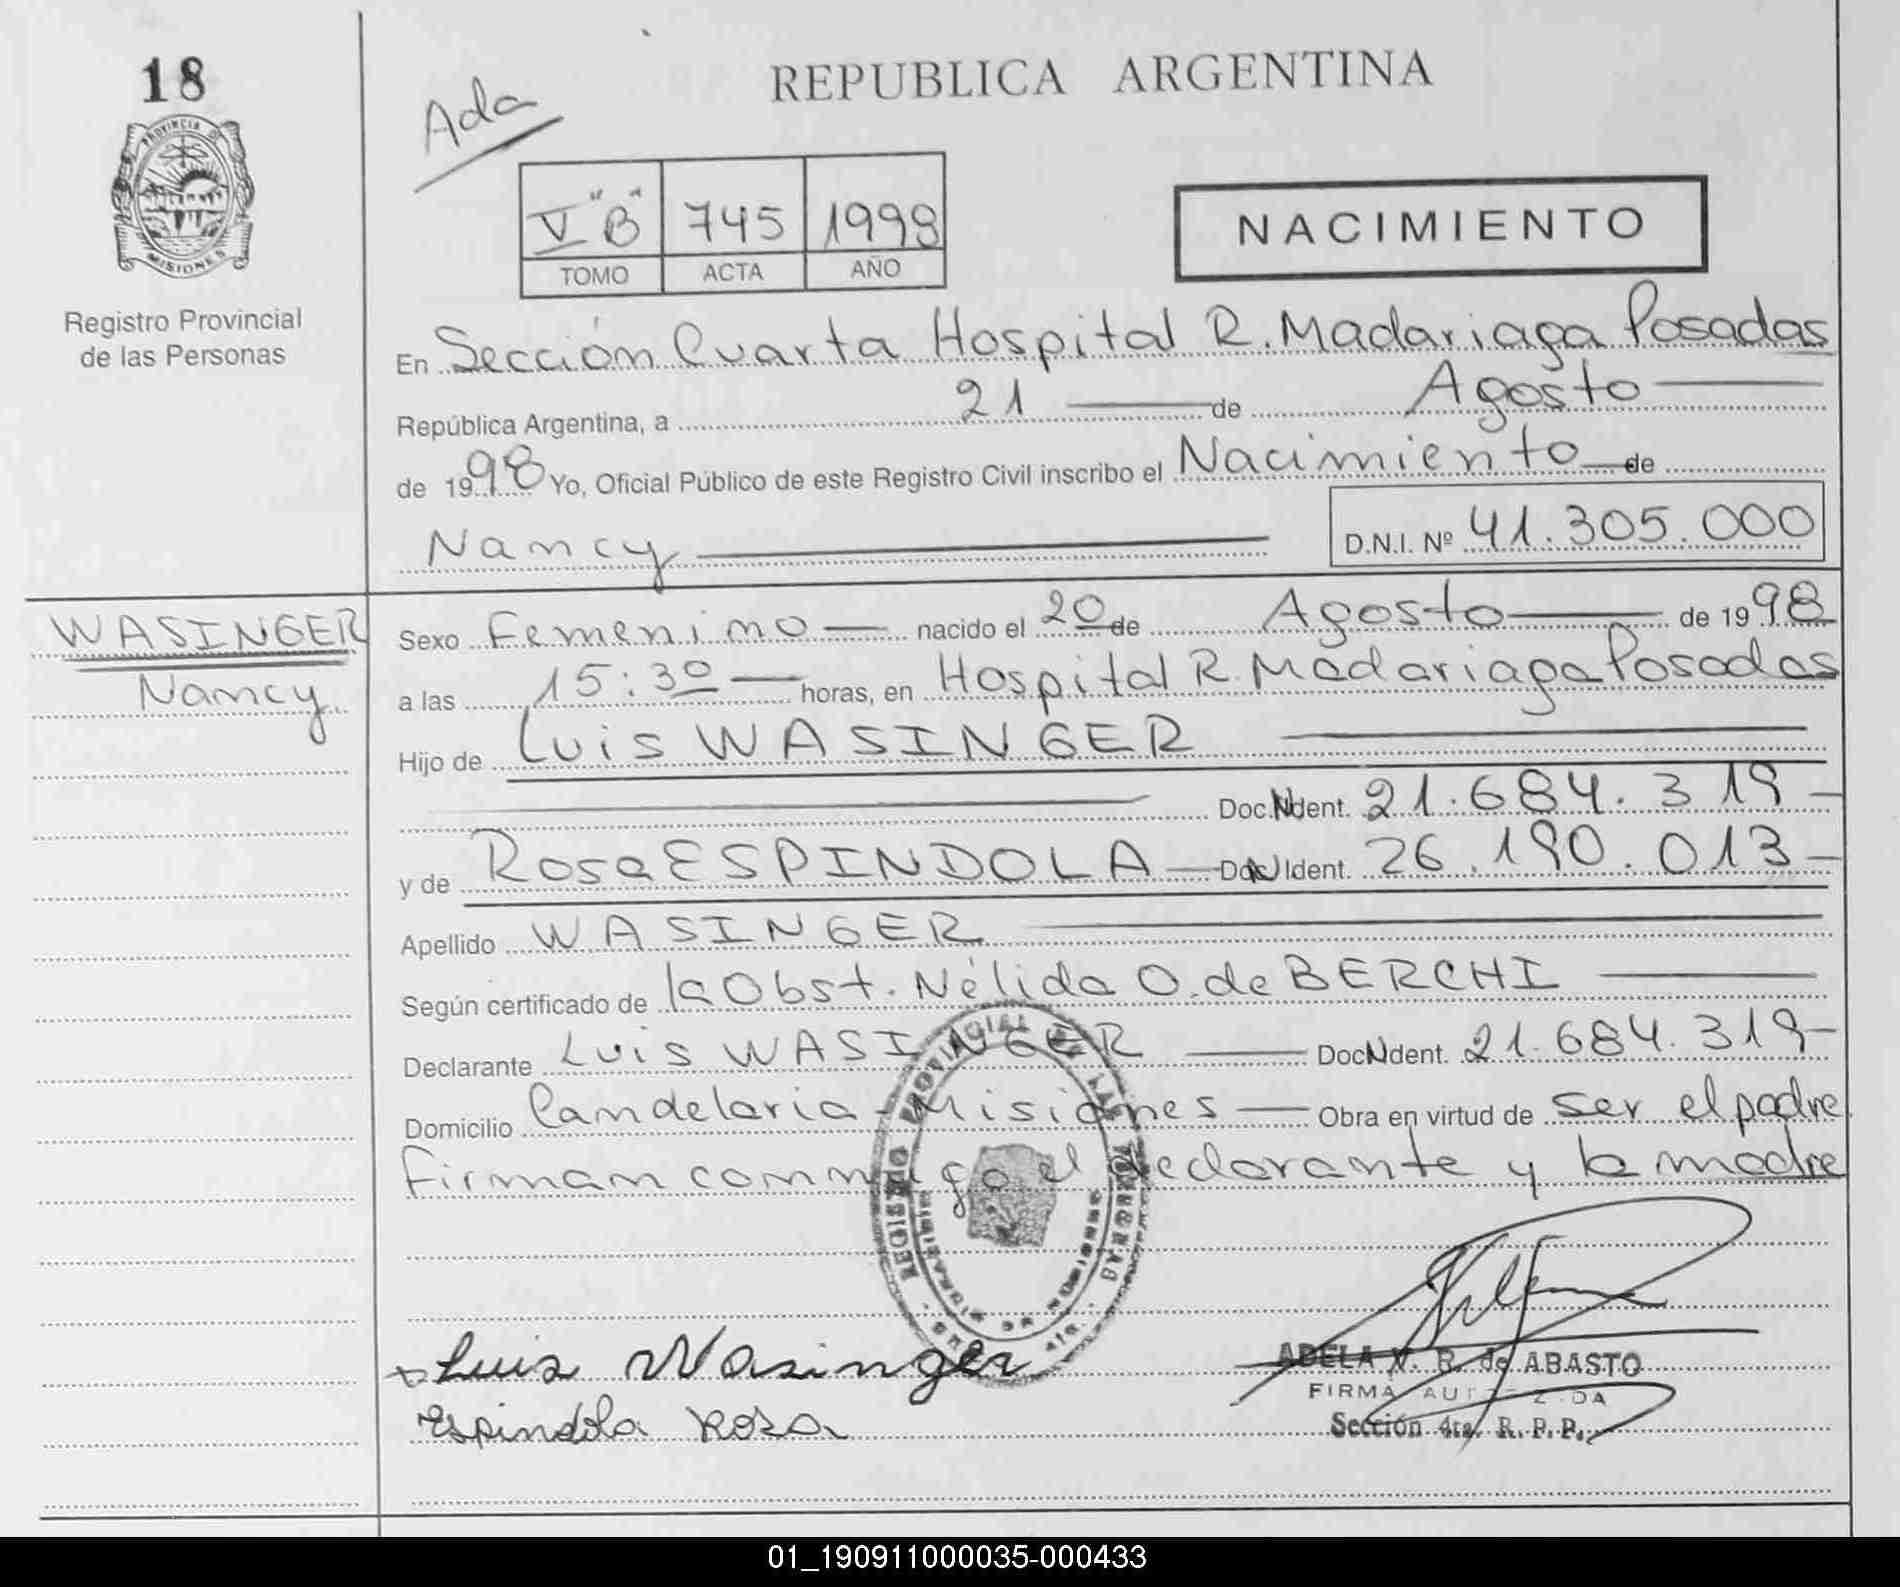 18
REPUBLICA ARGENTINA
Ada
PROVINCIA D
MISIONES
V "B" 745 1998
TOMO ACTA AÑO
NACIMIENTO
Registro Provincial
de las Personas
En Sección Cuarta Hospital R. Madariaga Posadas
República Argentina, a 21 de Agosto
de 1998 Yo, Oficial Público de este Registro Civil inscribo el Nacimiento de
Nancy D.N.I. Nº 41.305.000
WASINGER
Nancy
Sexo Femenino nacido el 20 de Agosto de 1998
a las 15:30 horas, en Hospital R. Madariaga Posadas
Hijo de Luis WASINGER
Doc.N Ident. 21.684.319
y de Rosa ESPINDOLA Doc N Ident. 26.190.013
Apellido WASINGER
Según certificado de la Obst. Nélida O. de BERCHI
Declarante Luis WASINGER Doc N Ident. 21.684.319
Domicilio Candelaria - Misiones Obra en virtud de ser el padre
Firman conmigo el declarante y la madre
REGISTRO PROVINCIAL DE LAS PERSONAS
Luis Wasinger
Espindola Rosa
ADELA V. R. de ABASTO
FIRMA AUTORIZADA
Sección 4ta. R. P. P.
01_190911000035-000433